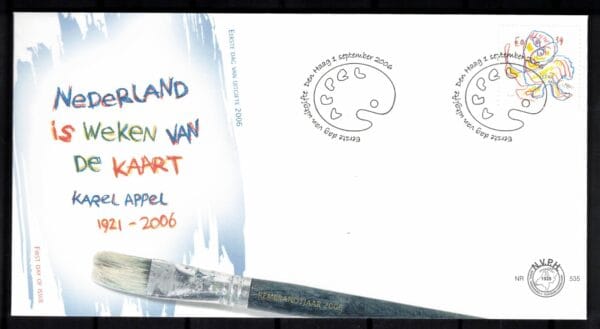 NEDERLAND
is WEKEN VAN
DE KAART
KAREL APPEL
1921 - 2006
EERSTE DAG VAN UITGIFTE 2006
FIRST DAY OF ISSUE
REMBRANDTJAAR 2006
Eerste dag van uitgifte Den Haag 1 september 2006
Eerste dag van uitgifte Den Haag 1 september 200
39
NR
N.V.P.H.
1928
535